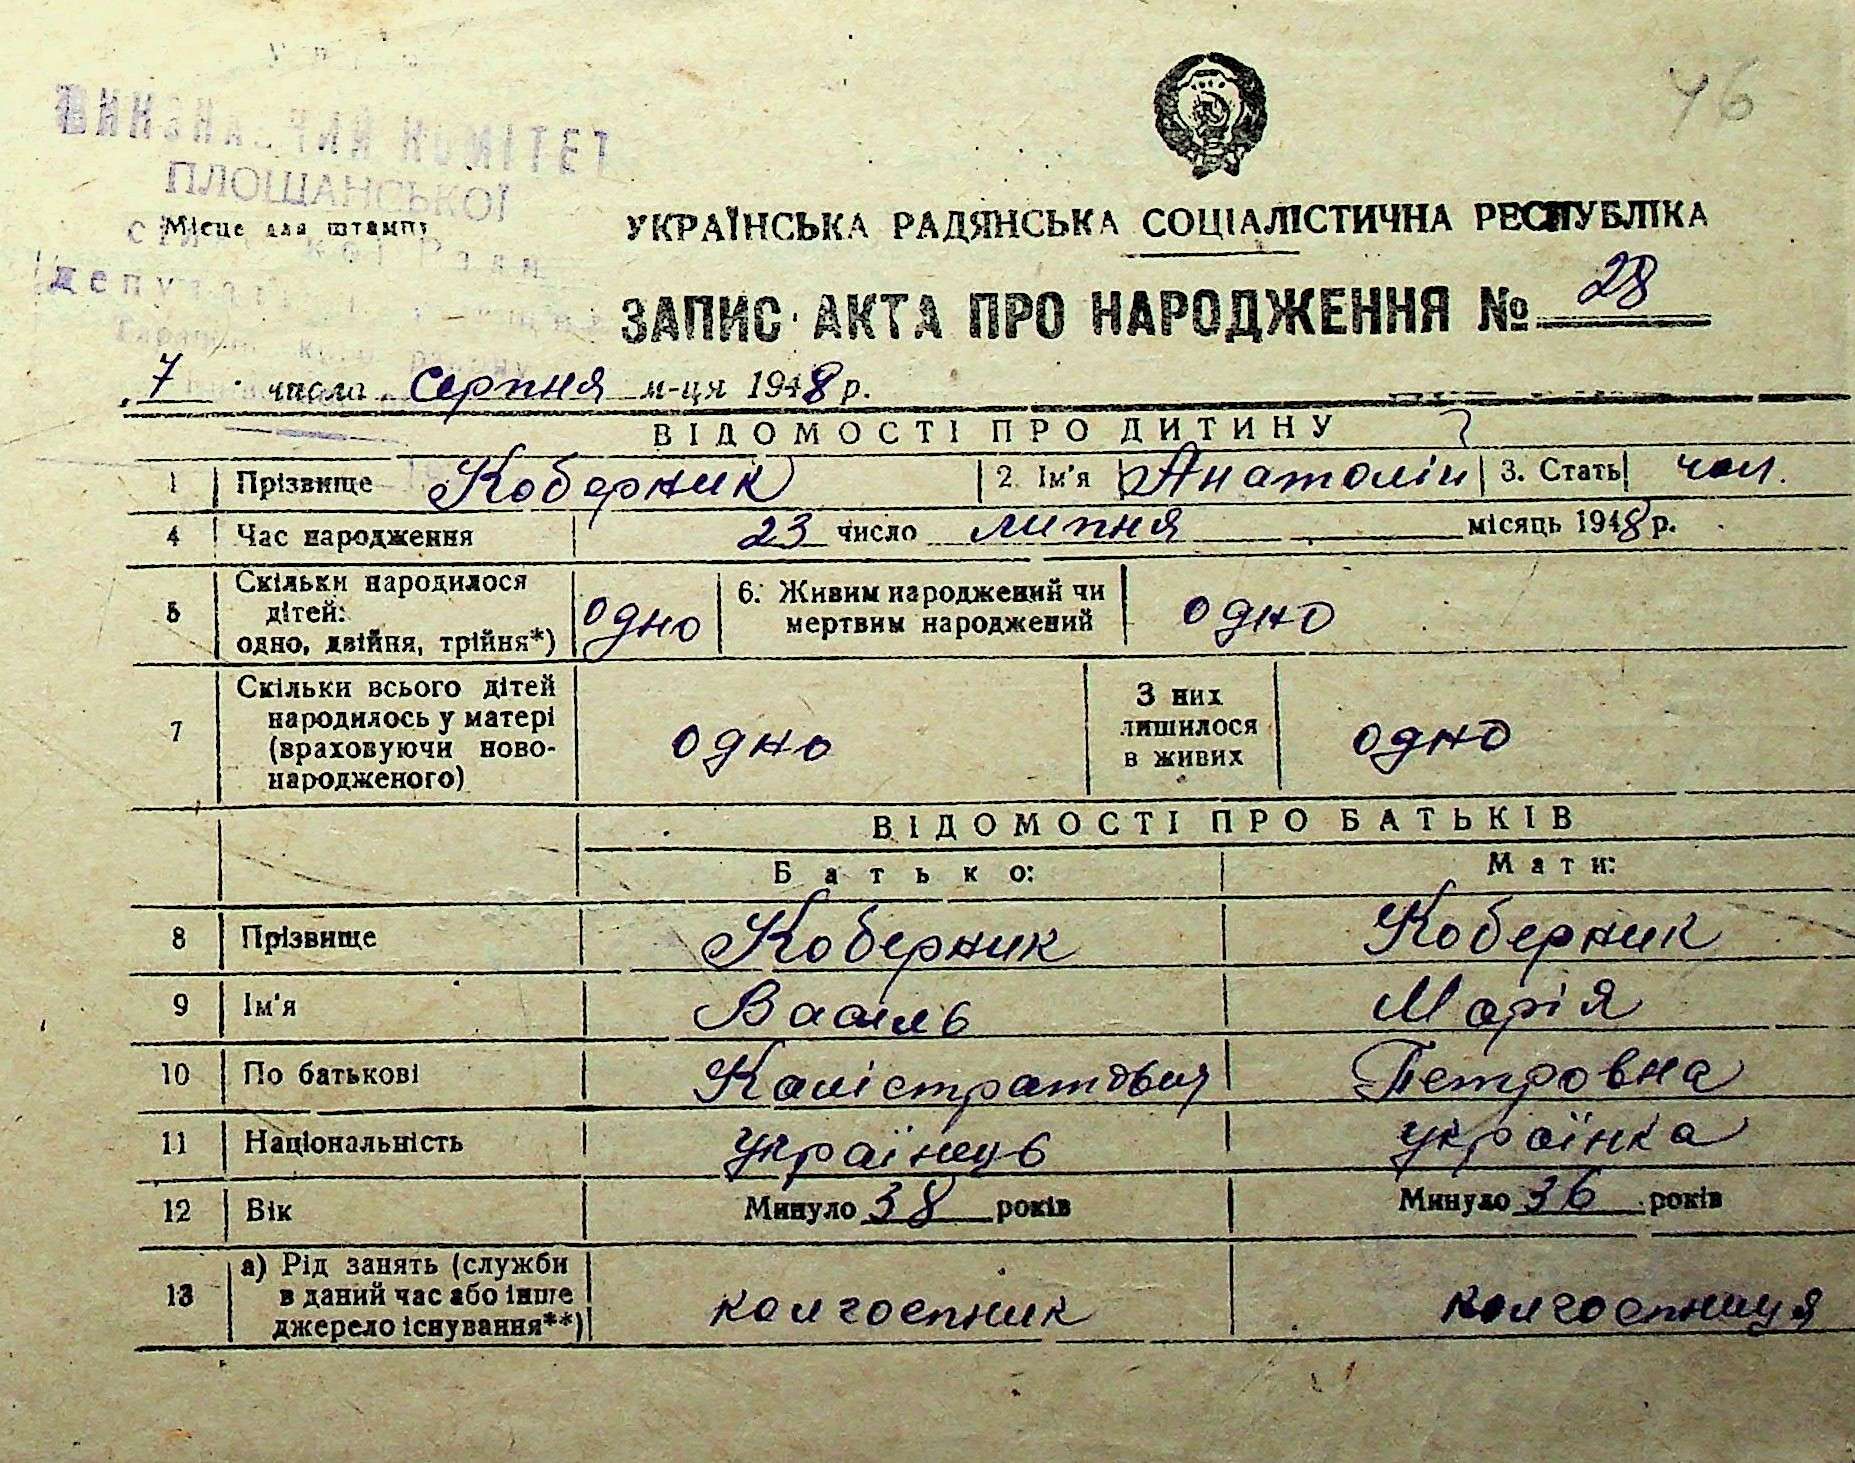 46
КОМІТЕТ
ПЛОЩАНСЬКОЇ
Місце для штампу
УКРАЇНСЬКА РАДЯНСЬКА СОЦІАЛІСТИЧНА РЕСПУБЛІКА
ЗАПИС АКТА ПРО НАРОДЖЕННЯ № 28
7 числа серпня м-ця 1948 р.
ВІДОМОСТІ ПРО ДИТИНУ
1 Прізвище Коберник 2. Ім'я Анатолій 3. Стать чол.
4 Час народження 23 число липня місяць 1948 р.
5 Скільки народилося дітей: одно, двійня, трійня*) одно 6. Живим народжений чи мертвим народжений одно
7 Скільки всього дітей народилось у матері (враховуючи ново-народженого) одно З них лишилося в живих одно
ВІДОМОСТІ ПРО БАТЬКІВ
Батько: Мати:
8 Прізвище Коберник Коберник
9 Ім'я Василь Марія
10 По батькові Калістратович Петровна
11 Національність українець українка
12 Вік Минуло 38 років Минуло 36 років
13 а) Рід занять (служби в даний час або інше джерело існування**) колгоспник колгоспниця